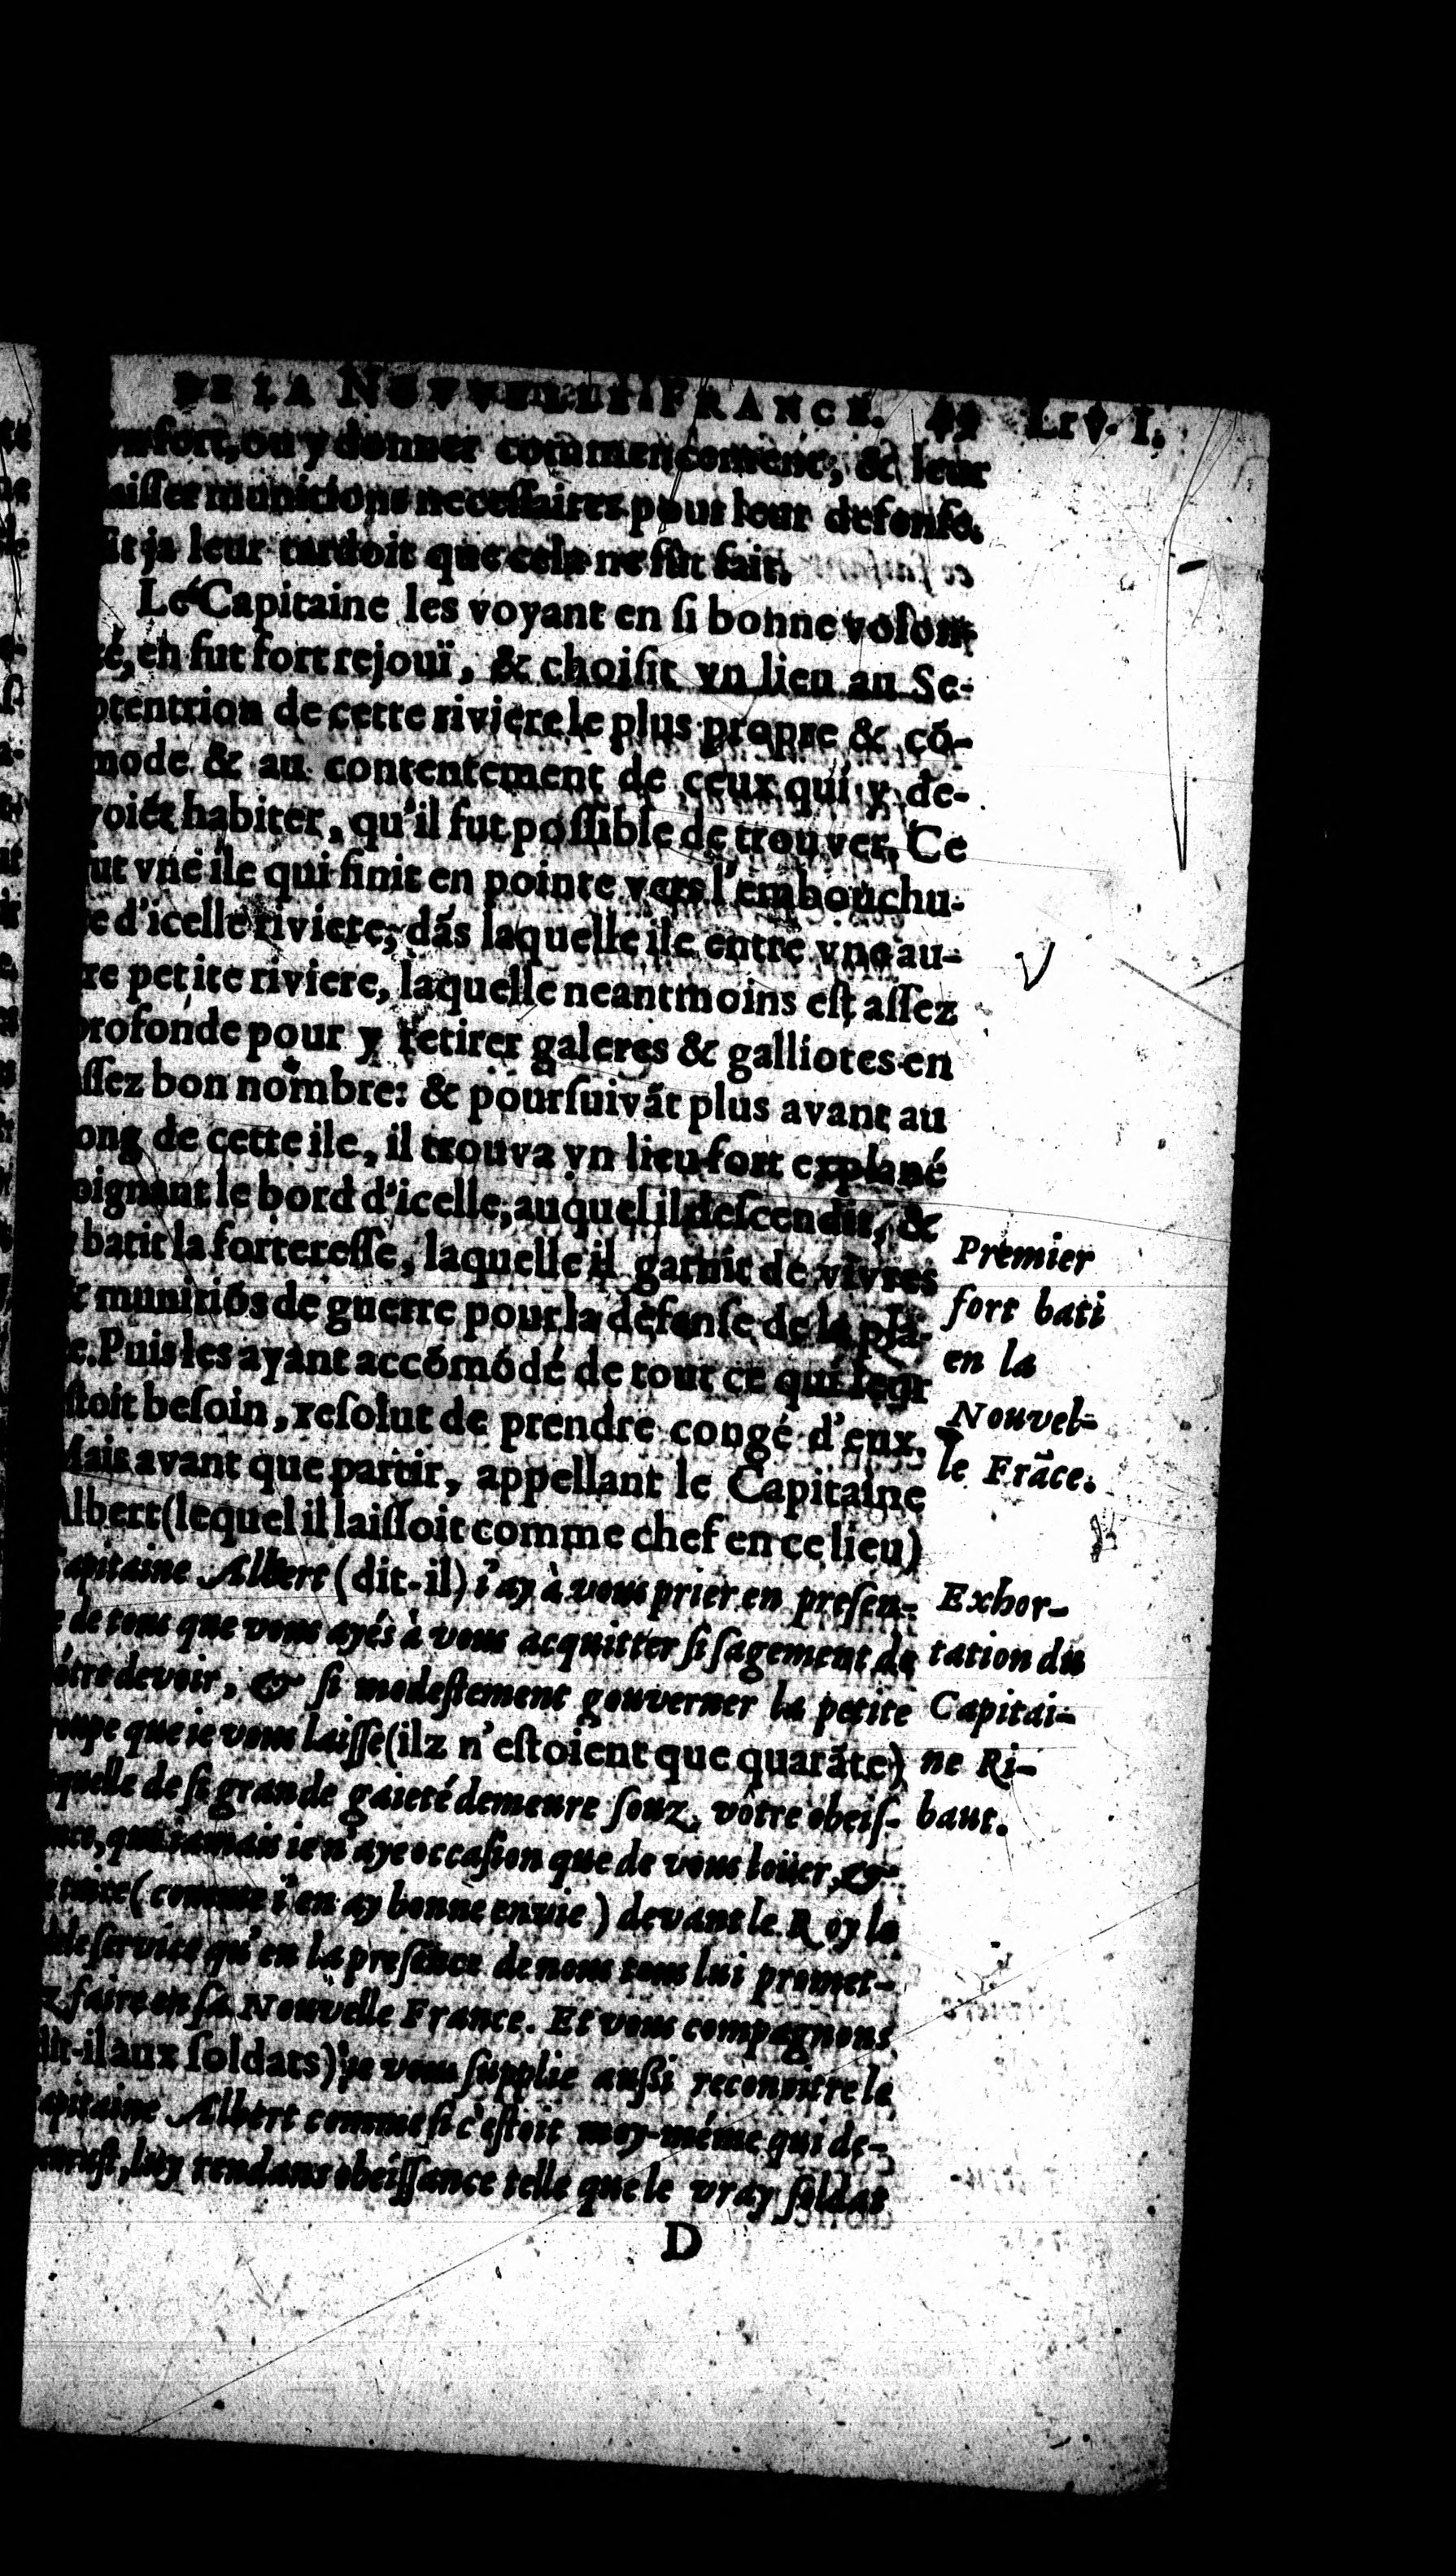 DE LA NOVVELLE FRANCE. 49 LIV. I.
vn fort, ou y donner commencement, & leur
aisser munitions necessaires pour leur defense.
Et ja leur tardoit que cela ne fût fait.
Le Capitaine les voyant en si bonne volon-
té, en fut fort rejouï, & choisit vn lieu au Se-
ptentrion de cette riviere le plus propre & cõ-
mode & au contentement de ceux qui y de-
voiẽt habiter, qu'il fut possible de trouver. Ce
ut vne ile qui finit en pointe vers l'embouchu-
e d'icelle riviere, dãs laquelle ile entre vne au-
re petite riviere, laquelle neantmoins est assez
profonde pour y retirer galeres & galliotes en
ssez bon nombre: & poursuivãt plus avant au
ong de cette ile, il trouva vn lieu fort explané
oignant le bord d'icelle, auquel il descendit, &
batit la forteresse, laquelle il garnit de vivres
& munitiõs de guerre pour la defense de la pla-
e. Puis les ayant accõmódé de tout ce qui leur
stoit besoin, resolut de prendre congé d'eux.
Mais avant que partir, appellant le Capitaine
Albert (lequel il laissoit comme chef en ce lieu)
Capitaine Albert (dit-il) i'ay à vous prier en presen-
e de tous que vous ayés à vous acquitter si sagement de
ótre devoir, & si modestement gouverner la petite
roupe que ie vous laisse (ilz n'estoient que quarãte)
quelle de si grande gaieté demeure souz vótre obeis-
nce, que iamais ie n'aye occasion que de vous loüer, &
taire (comme i'en ay bonne envie) devant le Roy le
dele service qu'en la presence de nous tous lui promet-
z faire en sa Nouvelle France. Et vous compagnons
dit-il aux soldats) je vous supplie aussi reconnitre le
apitaine Albert comme si c'estoit moy-méme qui de-
meurast, luy rendans obeissance telle que le vray soldat
D
Premier
fort bati
en la
Nouvel-
le Frãce.
Exhor-
tation du
Capitai-
ne Ri-
baut.